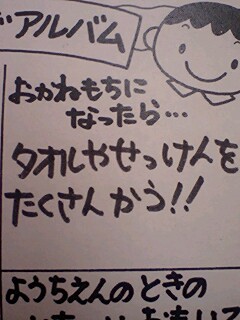 アルバム
おかねもちに
なったら…
タオルやせっけんを
たくさんかう!!
ようちえんのときの